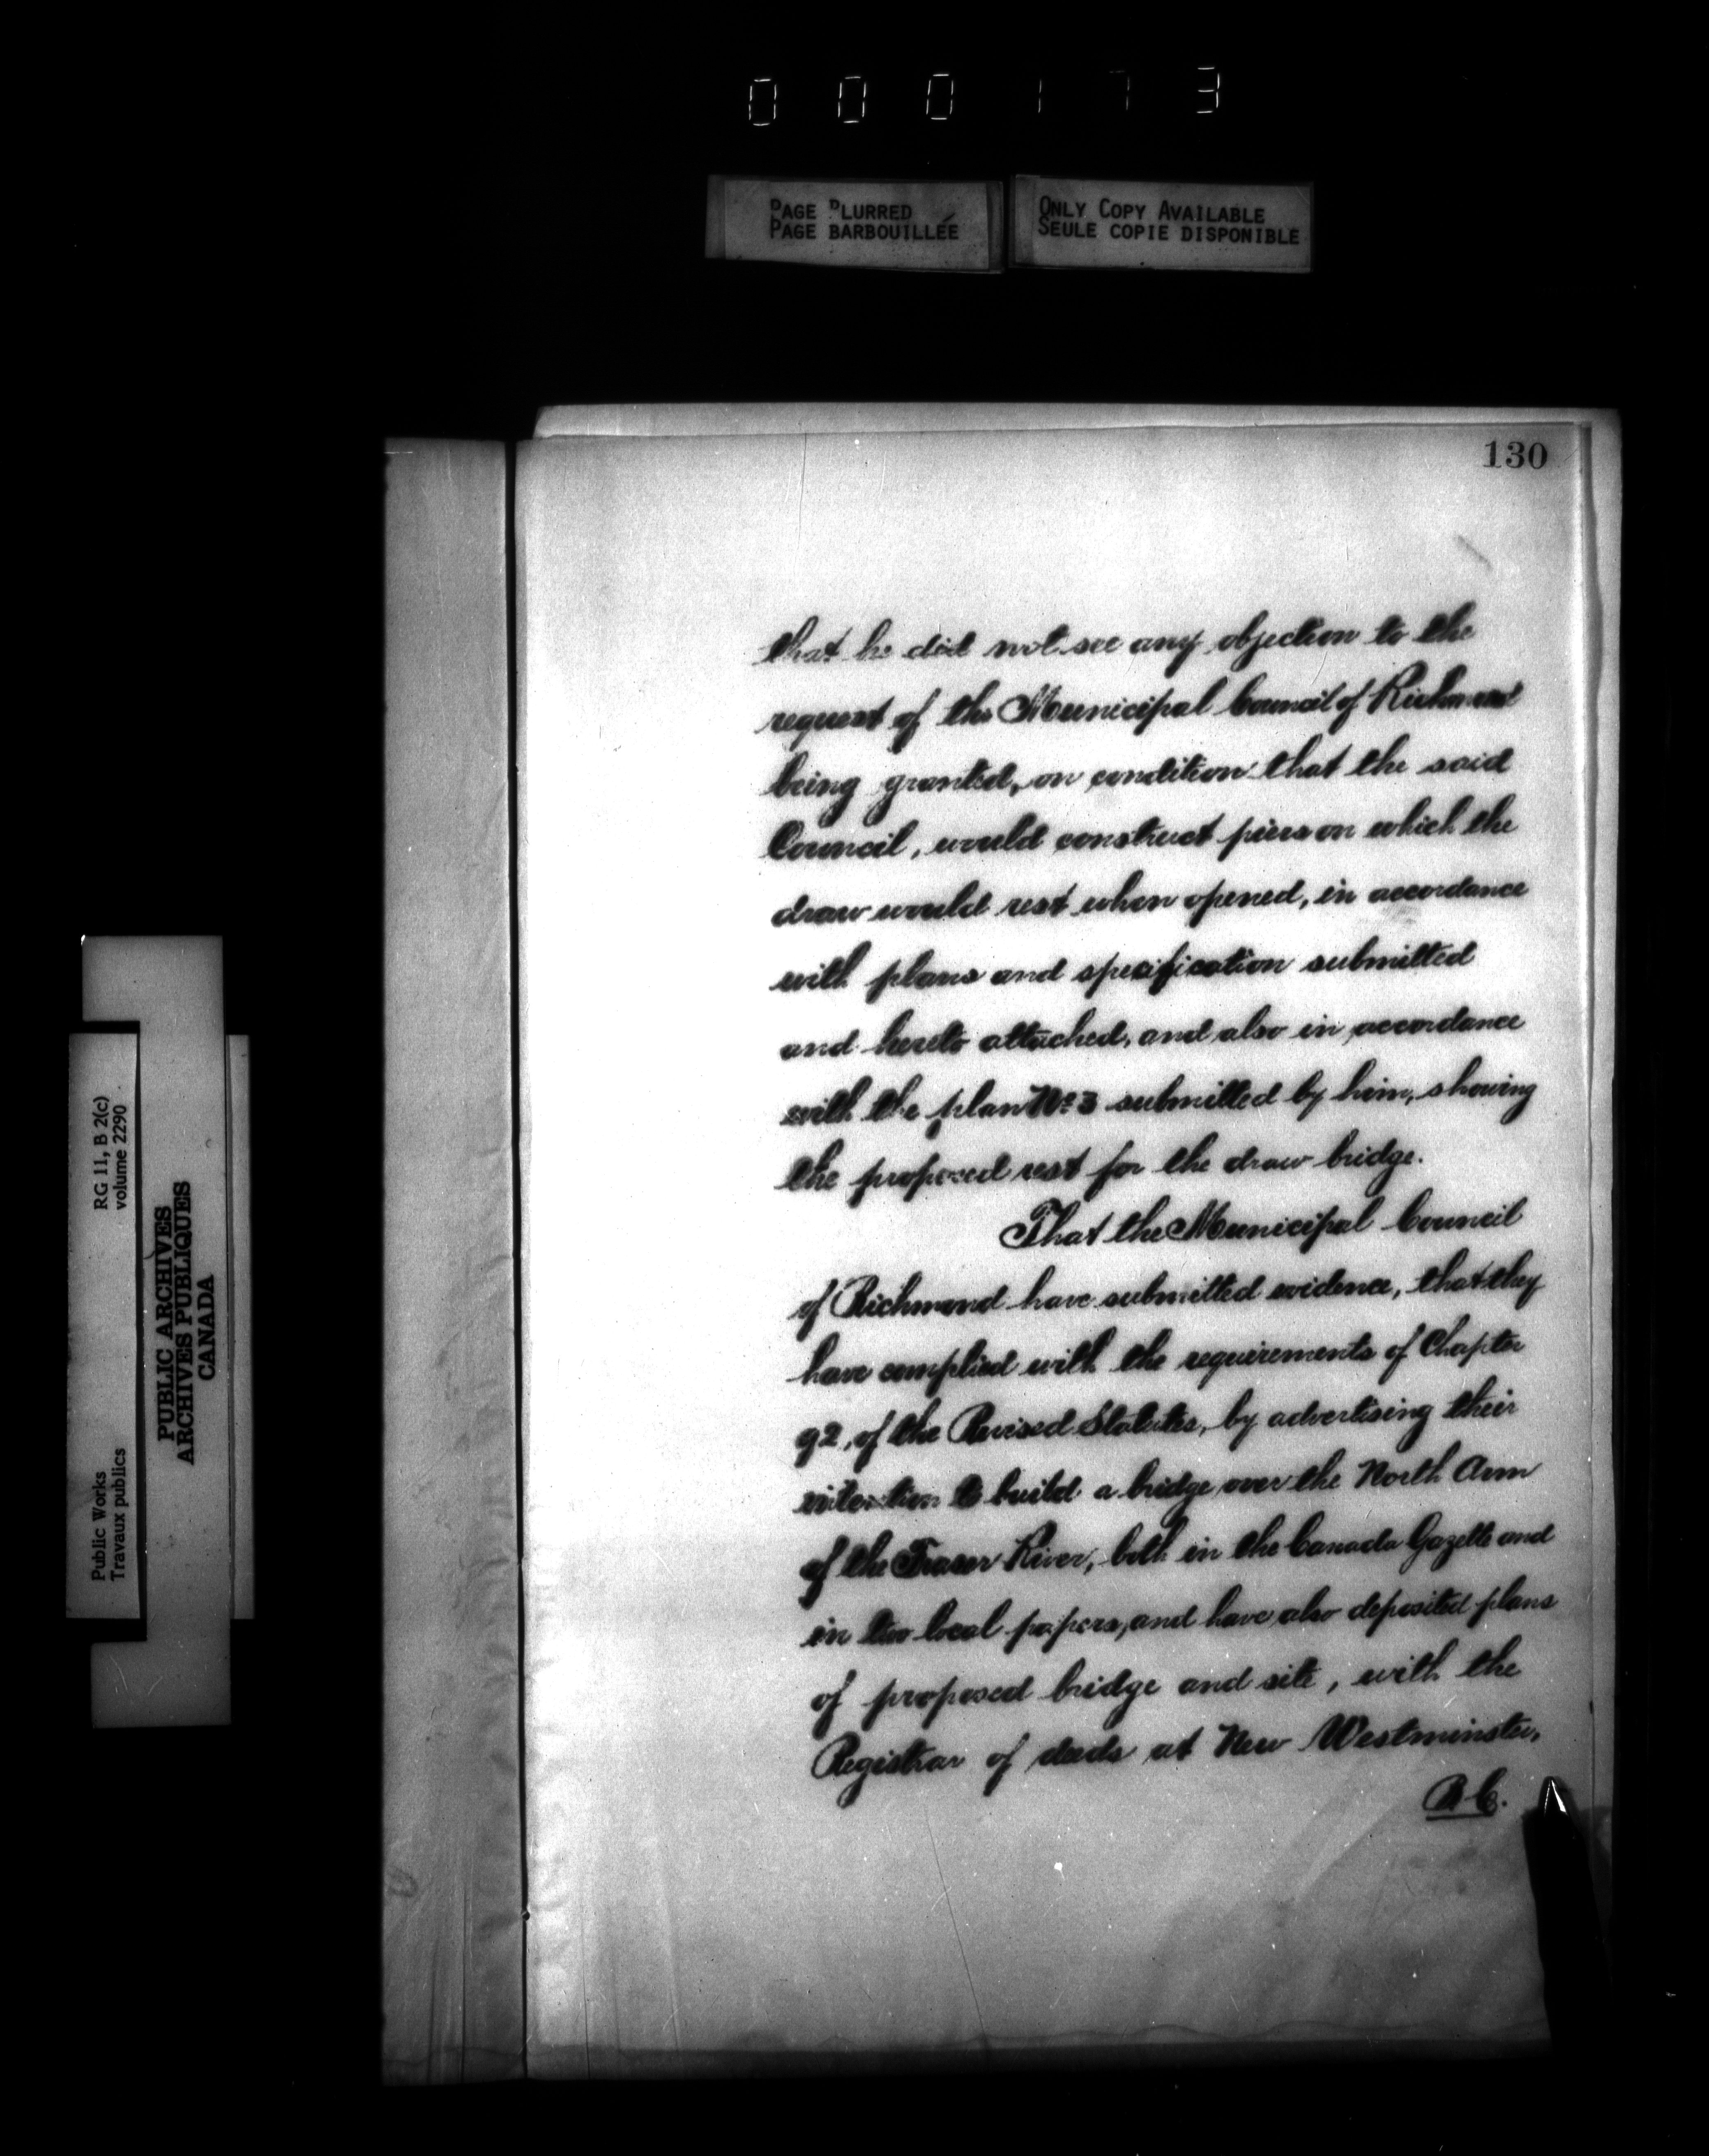 000173
PAGE BLURRED
PAGE BARBOUILLÉE
ONLY COPY AVAILABLE
SEULE COPIE DISPONIBLE
130
that he did not see any objection to the
request of the Municipal Council of Richmond
being granted, on condition that the said
Council, would construct piers on which the
draw would rest when opened, in accordance
with plans and specification submitted
and hereto attached, and also in accordance
with the plan No 3 submitted by him, showing
the proposed rest for the draw bridge.
That the Municipal Council
of Richmond have submitted evidence, that they
have complied with the requirements of Chapter
92, of the Revised Statutes, by advertising their
intention to build a bridge over the North Arm
of the Fraser River, both in the Canada Gazette and
in two local papers, and have also deposited plans
of proposed bridge and site, with the
Registrar of deeds at New Westminster,
B C.
RG 11, B 2(c)
volume 2290
Public Works
Travaux publics
PUBLIC ARCHIVES
ARCHIVES PUBLIQUES
CANADA